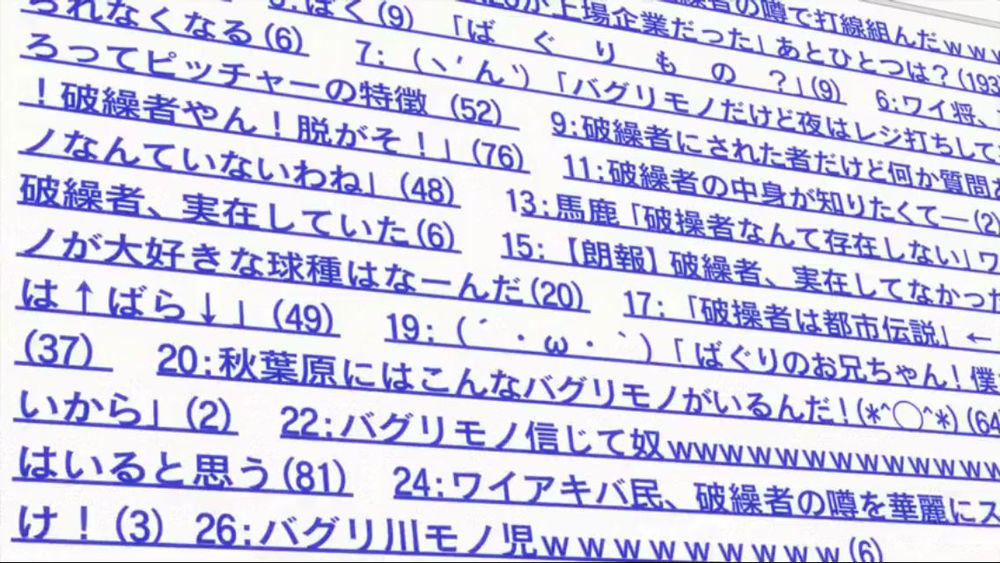 上場企業だった」あとひとつは？(193
の噂で打線組んだｗｗｗ
れなくなる(6) 7:（ヽ´ん`）「バグリモノだけど夜はレジ打ちして
ばく(9) 「ば ぐ り も の ？」(9) 6:ワイ将、
ろってピッチャーの特徴 (52) 9:破繰者にされた者だけど何か質問
！破繰者やん！脱がそ！」(76) 11:破繰者の中身が知りたくて―(2)
ノなんていないわね」(48) 13:馬鹿「破操者なんて存在しない」ワ
破繰者、実在していた(6) 15:【朗報】破繰者、実在してなかった
ノが大好きな球種はなーんだ(20) 17:「破操者は都市伝説」←
は↑ばら↓」(49) 19:（´・ω・｀）「ばぐりのお兄ちゃん！僕
(37) 20:秋葉原にはこんなバグリモノがいるんだ！(*^◯^*)(64
いから」(2) 22:バグリモノ信じて奴ｗｗｗｗｗｗｗｗｗｗｗｗｗ
はいると思う(81) 24:ワイアキバ民、破繰者の噂を華麗にス
け！(3) 26:バグリ川モノ児ｗｗｗｗｗｗｗｗｗ(6)